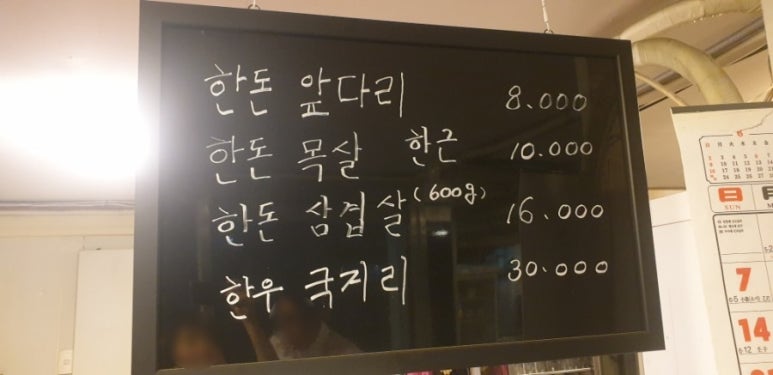 한돈 앞다리 8.000
한돈 목살 한근 10.000
한돈 삼겹살 (600g) 16.000
한우 국거리 30.000
日
SUN
7
14